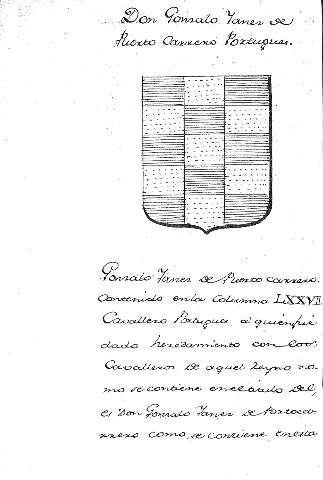 Don Gonzalo Yanes de
Puerto Carrero Portugues.
Gonzalo Yanes de Puerto carrero.
Contenido en la Columna LXXVII
Cavallero Portugues a quien fue
dado heredamiento con los
Cavalleros de aquel Reyno co-
mo se contiene en el dado del,
el Don Gonzalo Yanes de Portoca-
rrero como, se contiene en esta